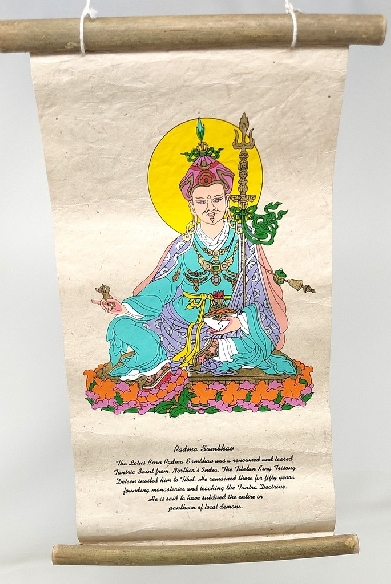 Padma Sambhav
The Lotus Born Padma Sambhav was a renowned and learned
Tantric Saint from Northen's India. The Tibetan King Trisong
Detsen invited him to Tibet. He remained there for fifty years
founding monasteries and teaching the Tantra Doctrine.
He is said to have subdued the entire in
pantheon of local demons.